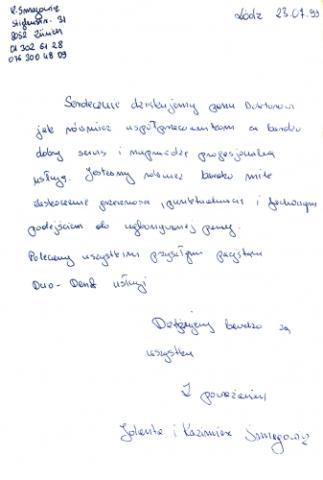 K. Smagowicz
8052 Zürich
01 302 61 28
076 300 48 09
Łódź 23.07.99
Serdecznie dziękujemy panu Doktorowi
jak również współpracownikom za bardzo
dobry serwis i naprawdę profesjonalną
usługę. Jesteśmy również bardzo mile
zaskoczeni punktualność i fachowym
podejściem do wykonywanej pracy.
Polecamy wszystkim przyszłym pacjentom
Duo-Dent usługi
Dziękujemy bardzo za
wszystko
Z poważaniem
Jolanta i Kazimierz Smagowicz